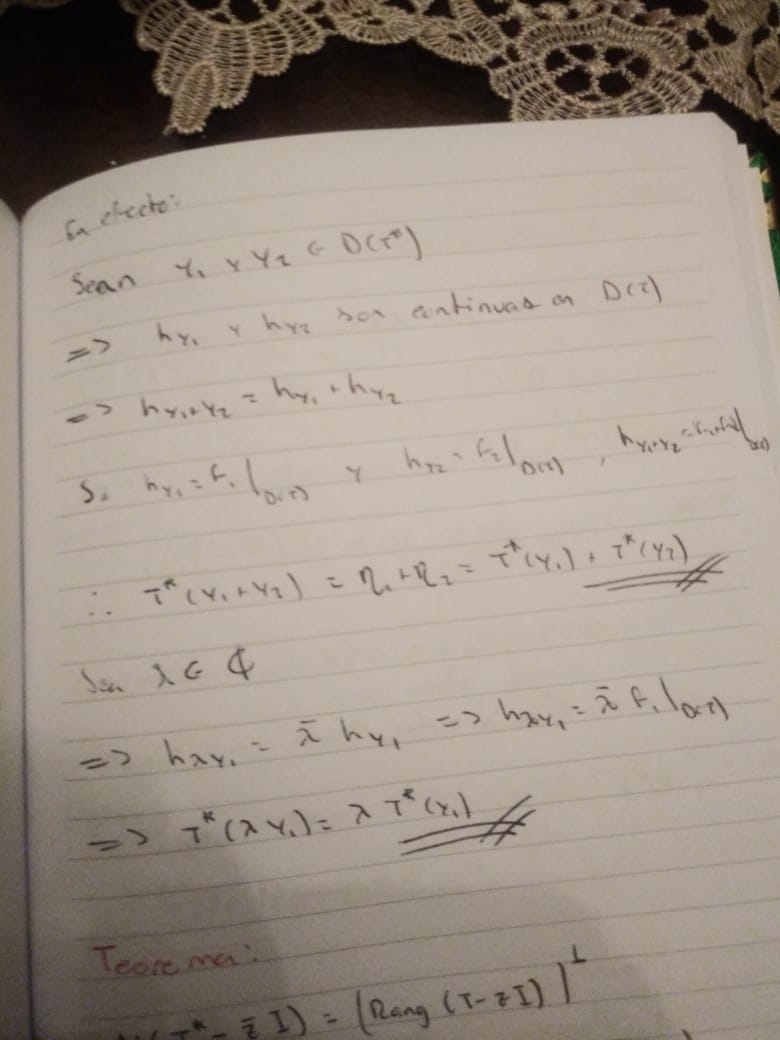 En efecto:
Sean Y₁ y Y₂ ∈ D(T*)
=> h_Y₁ y h_Y₂ son continuas en D(T)
=> h_Y₁+Y₂ = h_Y₁ + h_Y₂
Si h_Y₁ = F₁|_D(T) y h_Y₂ = F₂|_D(T) , h_Y₁+Y₂ = F₁+F₂|_D(T)
∴ T*(Y₁+Y₂) = η₁+η₂ = T*(Y₁) + T*(Y₂)
Sea λ ∈ ℂ
=> h_λY₁ = λ̄ h_Y₁ => h_λY₁ = λ̄ F₁|_D(T)
=> T*(λY₁) = λ T*(Y₁)
Teorema:
(T* - z̄ I) = (Rang (T - zI))^⊥